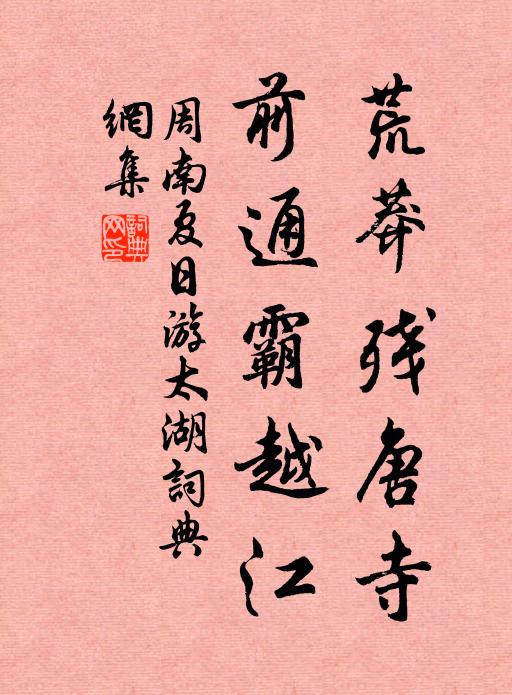 荒莽残唐寺
前通霸越江
周南夏日游太湖詞典
網集
詞典網印